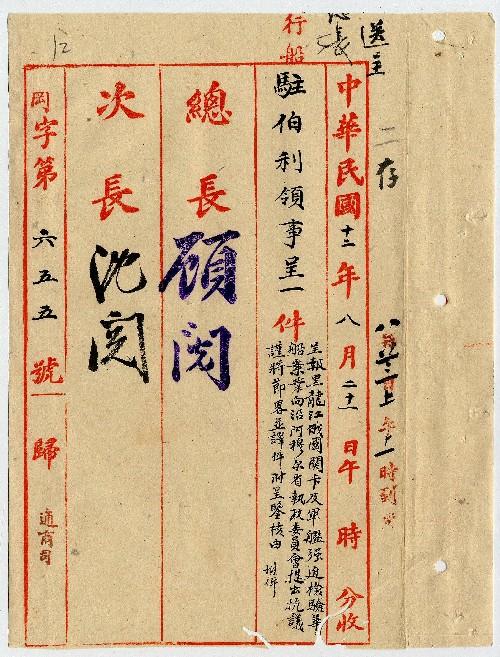 送主
二存
八月廿二日上午十一時到
中華民國十二年八月二十二日午時分收
行船
駐伯利領事呈一件
呈報黑龍江俄國關卡及軍艦强迫檢驗華
船業業向沿阿穆尔省執政委員會提出抗議
謹將節畧並譯件附呈鑒核由
總長
顧閱
次長
沈閱
岡字第六五五號
歸
通商司